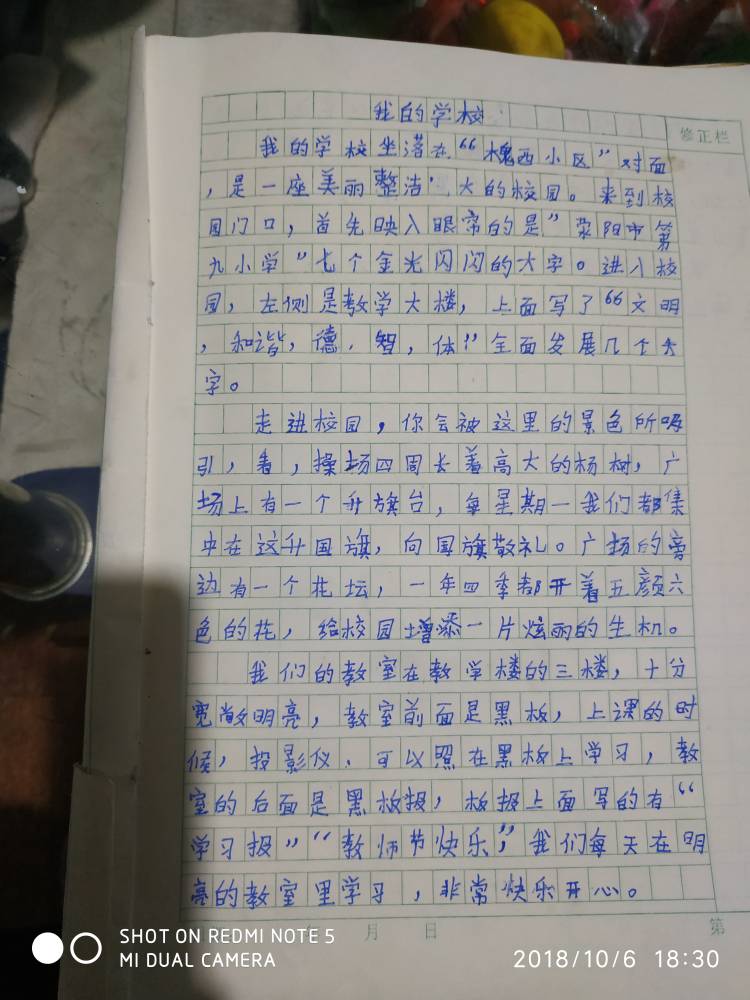 我的学校
修正栏
我的学校坐落在“槐西小区”对面
，是一座美丽整洁、大的校园。来到校
园门口，首先映入眼帘的是”荥阳市第
九小学”七个金光闪闪的大字。进入校
园，左侧是教学大楼，上面写了“文明
，和谐，德．智，体”全面发展几个大
字。
走进校园，你会被这里的景色所吸
引，看，操场四周长着高大的杨树，广
场上有一个升旗台，每星期一我们都集
中在这升国旗，向国旗敬礼。广场的旁
边有一个花坛，一年四季都开着五颜六
色的花，给校园增添一片炫丽的生机。
我们的教室在教学楼的三楼，十分
宽敞明亮，教室前面是黑板，上课的时
候，投影仪．可以照在黑板上学习，教
室的后面是黑板报，板报上面写的有“
学习报”“教师节快乐”，我们每天在明
亮的教室里学习，非常快乐开心。
月 日 第
SHOT ON REDMI NOTE 5
MI DUAL CAMERA
2018/10/6 18:30